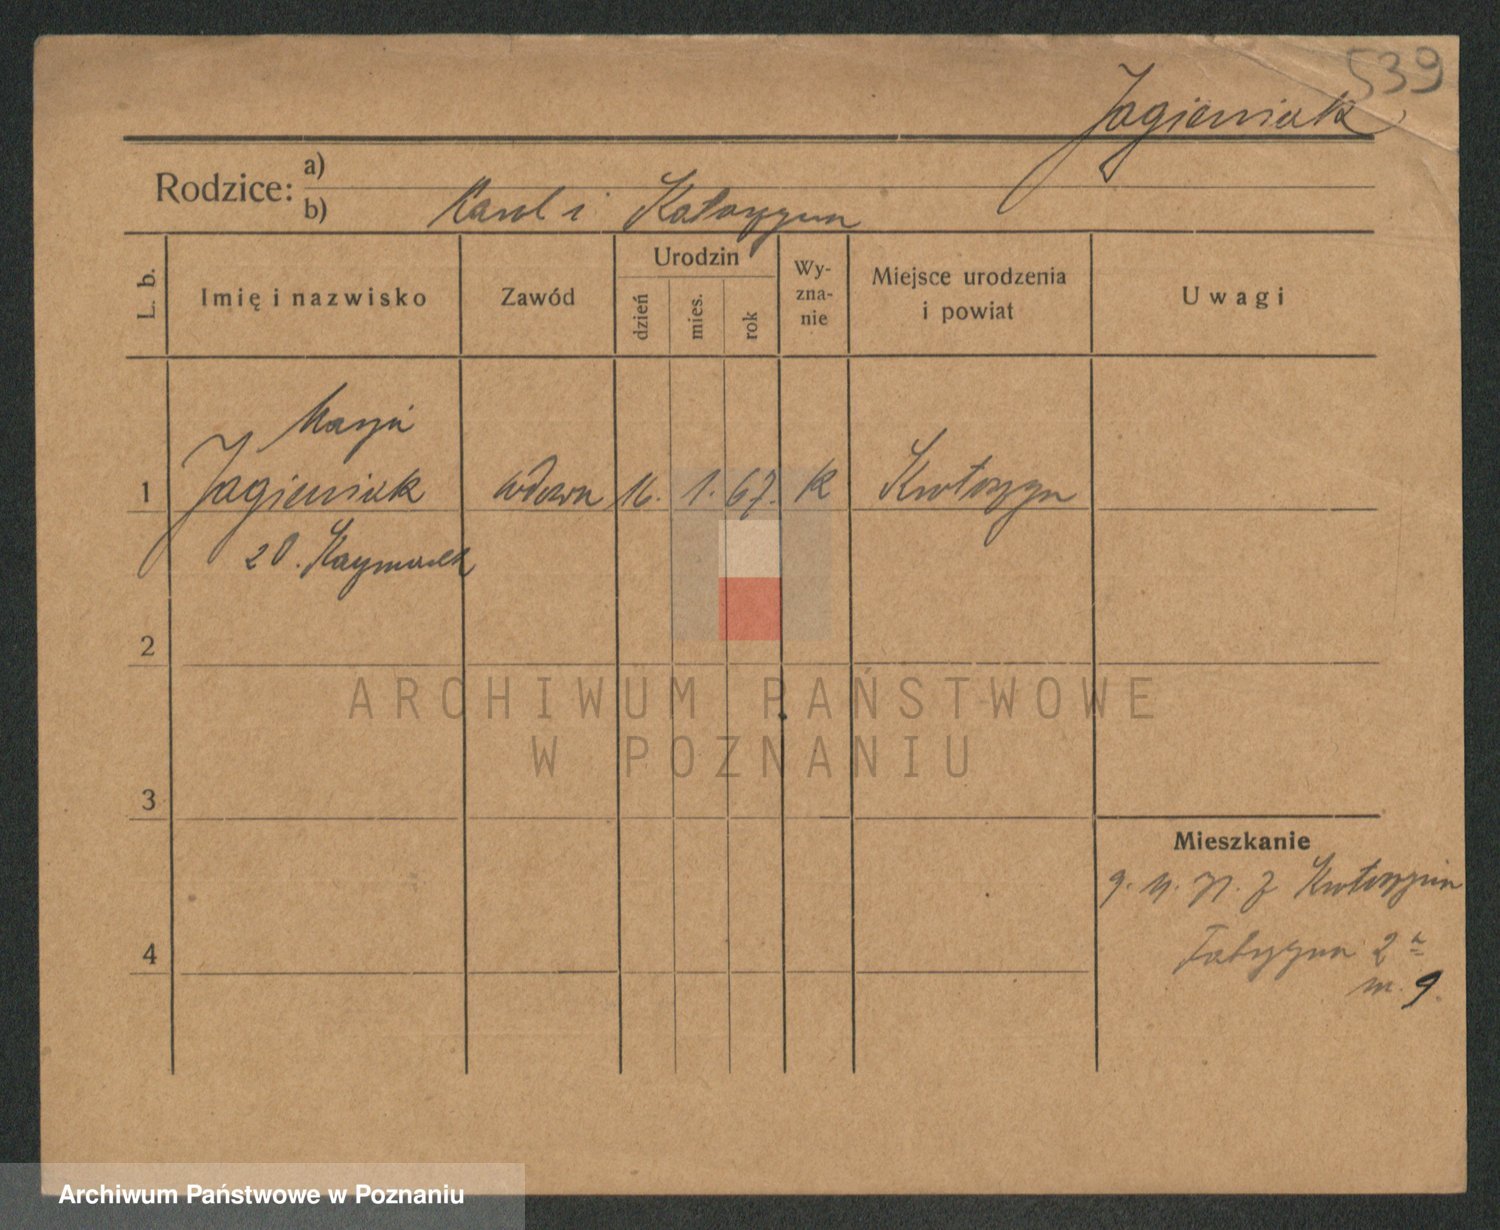 539
Jagieniak
Rodzice: a)
b) Karol i Katarzyna
L. b.
Imię i nazwisko
Zawód
Urodzin
dzień
mies.
rok
Wy-
zna-
nie
Miejsce urodzenia
i powiat
Uwagi
Marja
1 Jagieniak wdowa 16. 1. 67. K Krotoszyn
20. Kaczmarek
2
3
4
Mieszkanie
Krotoszyn
Fabryczna 2a
m. 9.
ARCHIWUM PAŃSTWOWE
W POZNANIU
Archiwum Państwowe w Poznaniu